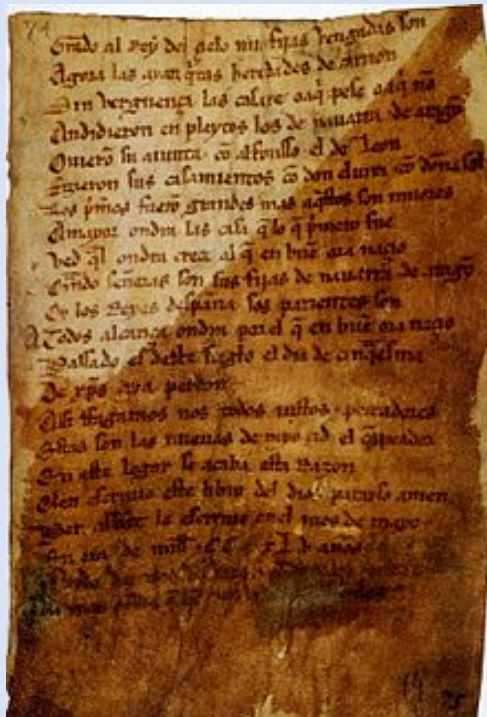 74
Grado al Rey del çielo mis fijas vengadas son
Agora las ayan q̃tas heredades de carrion
Sin verguença las casare o aq̃ pese o aq̃ nõ
Andidieron en pleytos los de nauarra de aragõ
Ouierõ su aiunta cõ alfonsso el de Leon
Fizieron sus casamientos cõ don eluira cõ doña sol
Los p̃meros fuerõ grandes mas aq̃stos son miiores
A mayor ondra las casa q̃ lo q̃ p̃mero fue
Ved q̃l ondra creçe al q̃ en buẽ ora naçio
Quãdo señoras son sus fijas de nauarra de aragõ
Oy los Reyes despaña sos parientes son
A Todos alcança ondra por el q̃ en buẽ ora naçio
Passado es deste sieglo el dia de çinq̃esma
De xp̃s aya perdon
Assi ffagamos nos todos iustos peccadores
Estas son las nueuas de myo çid el cãpeador
En este logar se acaba esta Razon
Quien escriuio este libro del dios parayso amen
Per abbat le escriuio en el mes de mayo
En era de mill CC xL v años
75